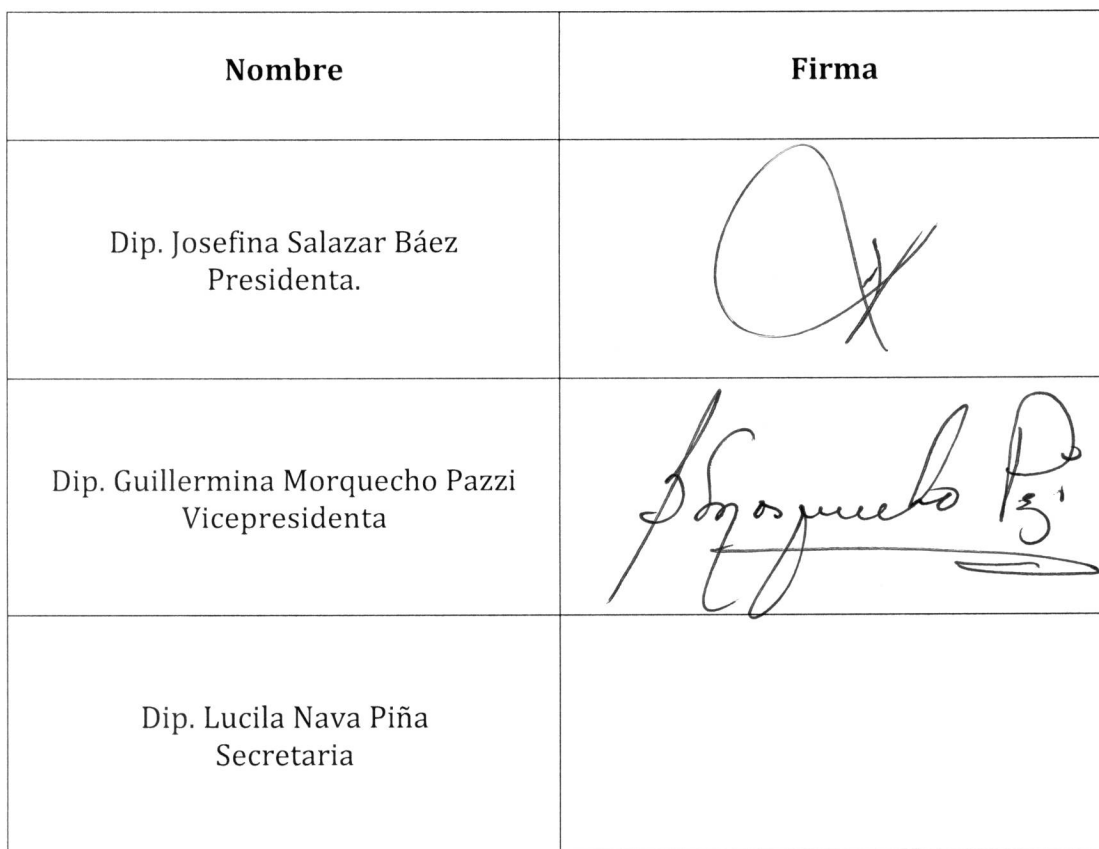 Nombre
Firma
Dip. Josefina Salazar Báez
Presidenta.
Dip. Guillermina Morquecho Pazzi
Vicepresidenta
Dip. Lucila Nava Piña
Secretaria